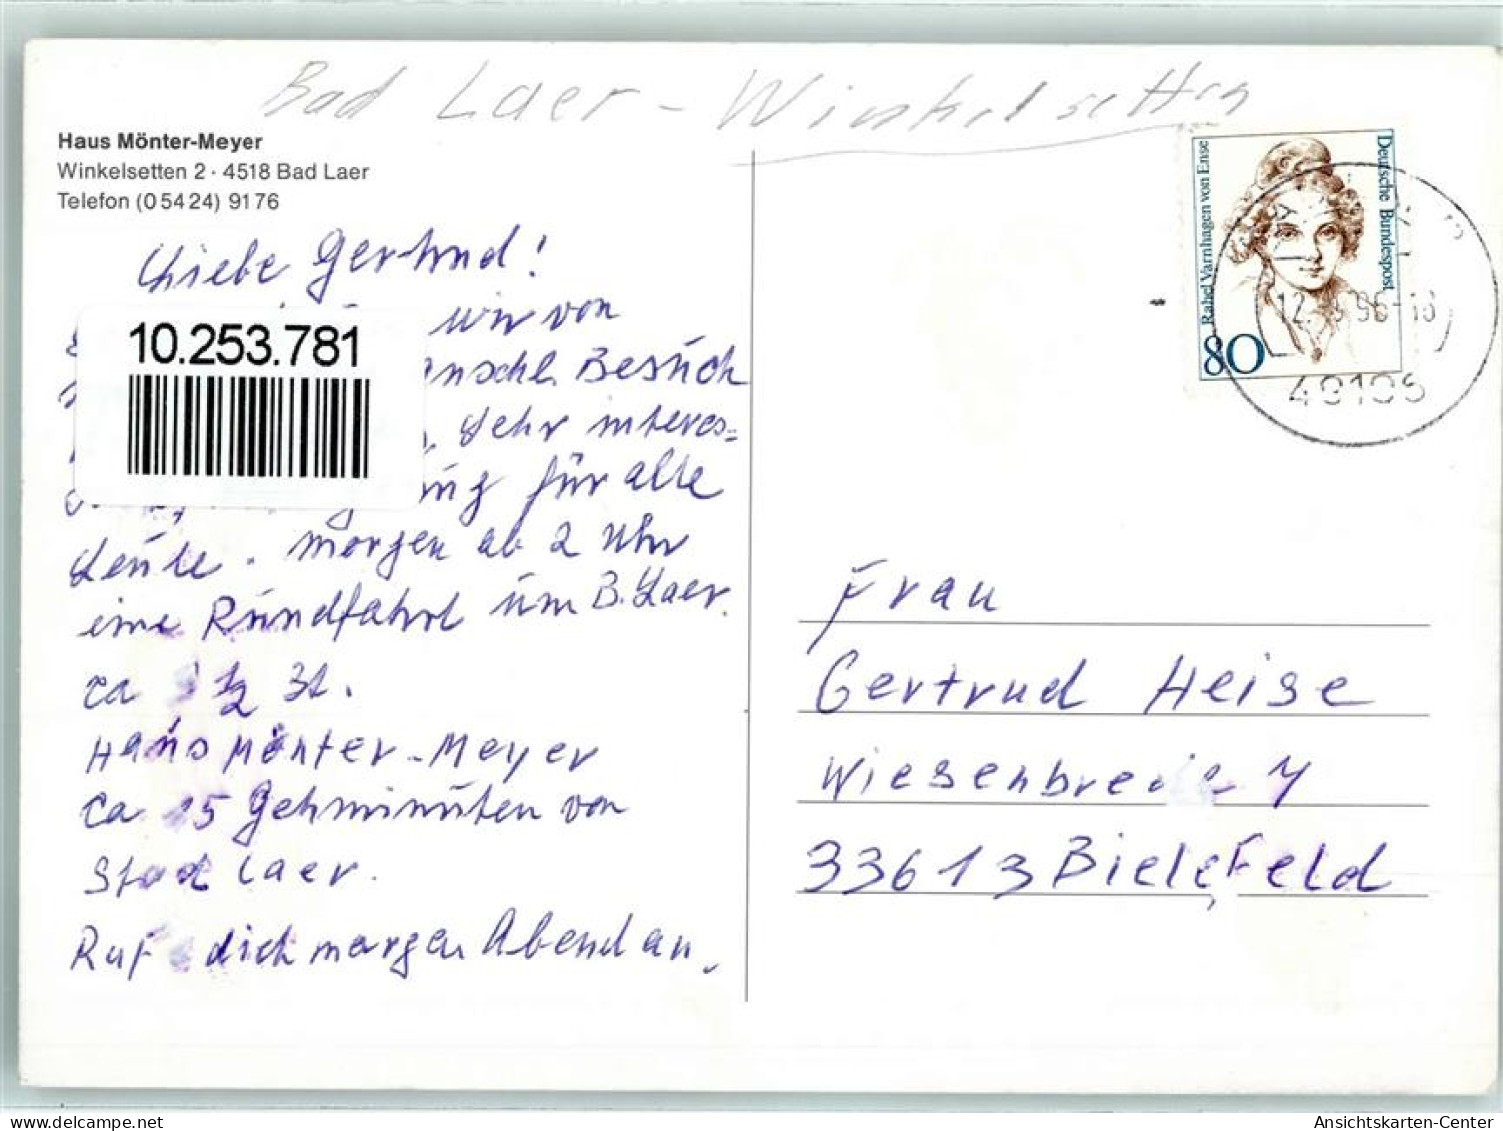 Bad Laer - Winkelsetten
Haus Mönter-Meyer
Winkelsetten 2 · 4518 Bad Laer
Telefon (0 54 24) 91 76
Liebe Gertrud!
wir von
10.253.781
anschl. Besuch
Sehr interes=
für alte
Leute. Morgen ab 2 Uhr
eine Rundfahrt um B. Laer.
ca 1/2 St.
Haus Mönter-Meyer
ca 15 Gehminuten von
Stad Laer.
Ruf dich morgen Abend an.
Rahel Varnhagen von Ense
Deutsche Bundespost
80
Frau
Gertrud Heise
Wiesenbre
33613 Bielefeld
Ansichtskarten-Center
www.delcampe.net